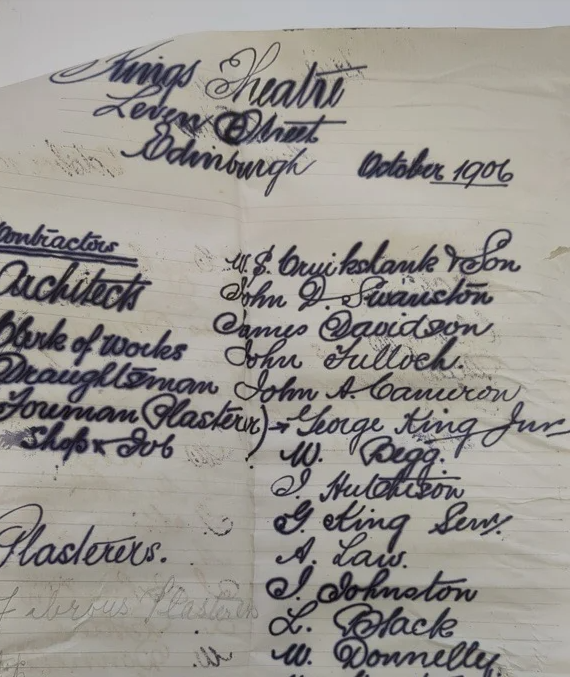 Kings Theatre
Leven Street
Edinburgh
October 1906
Contractors
W. S. Cruikshank & Son
Architects
John D. Swanston
James Davidson
Clerk of works
John Tulloch.
Draughtsman
John A. Cameron
Foreman (Plasterer) → George King Junr
Shop & Job
W. Begg.
J. Hutchison
G. King Senr.
Plasterers.
A. Law.
J. Johnston
Fibrous Plasterers
L. Black
W. Donnelly